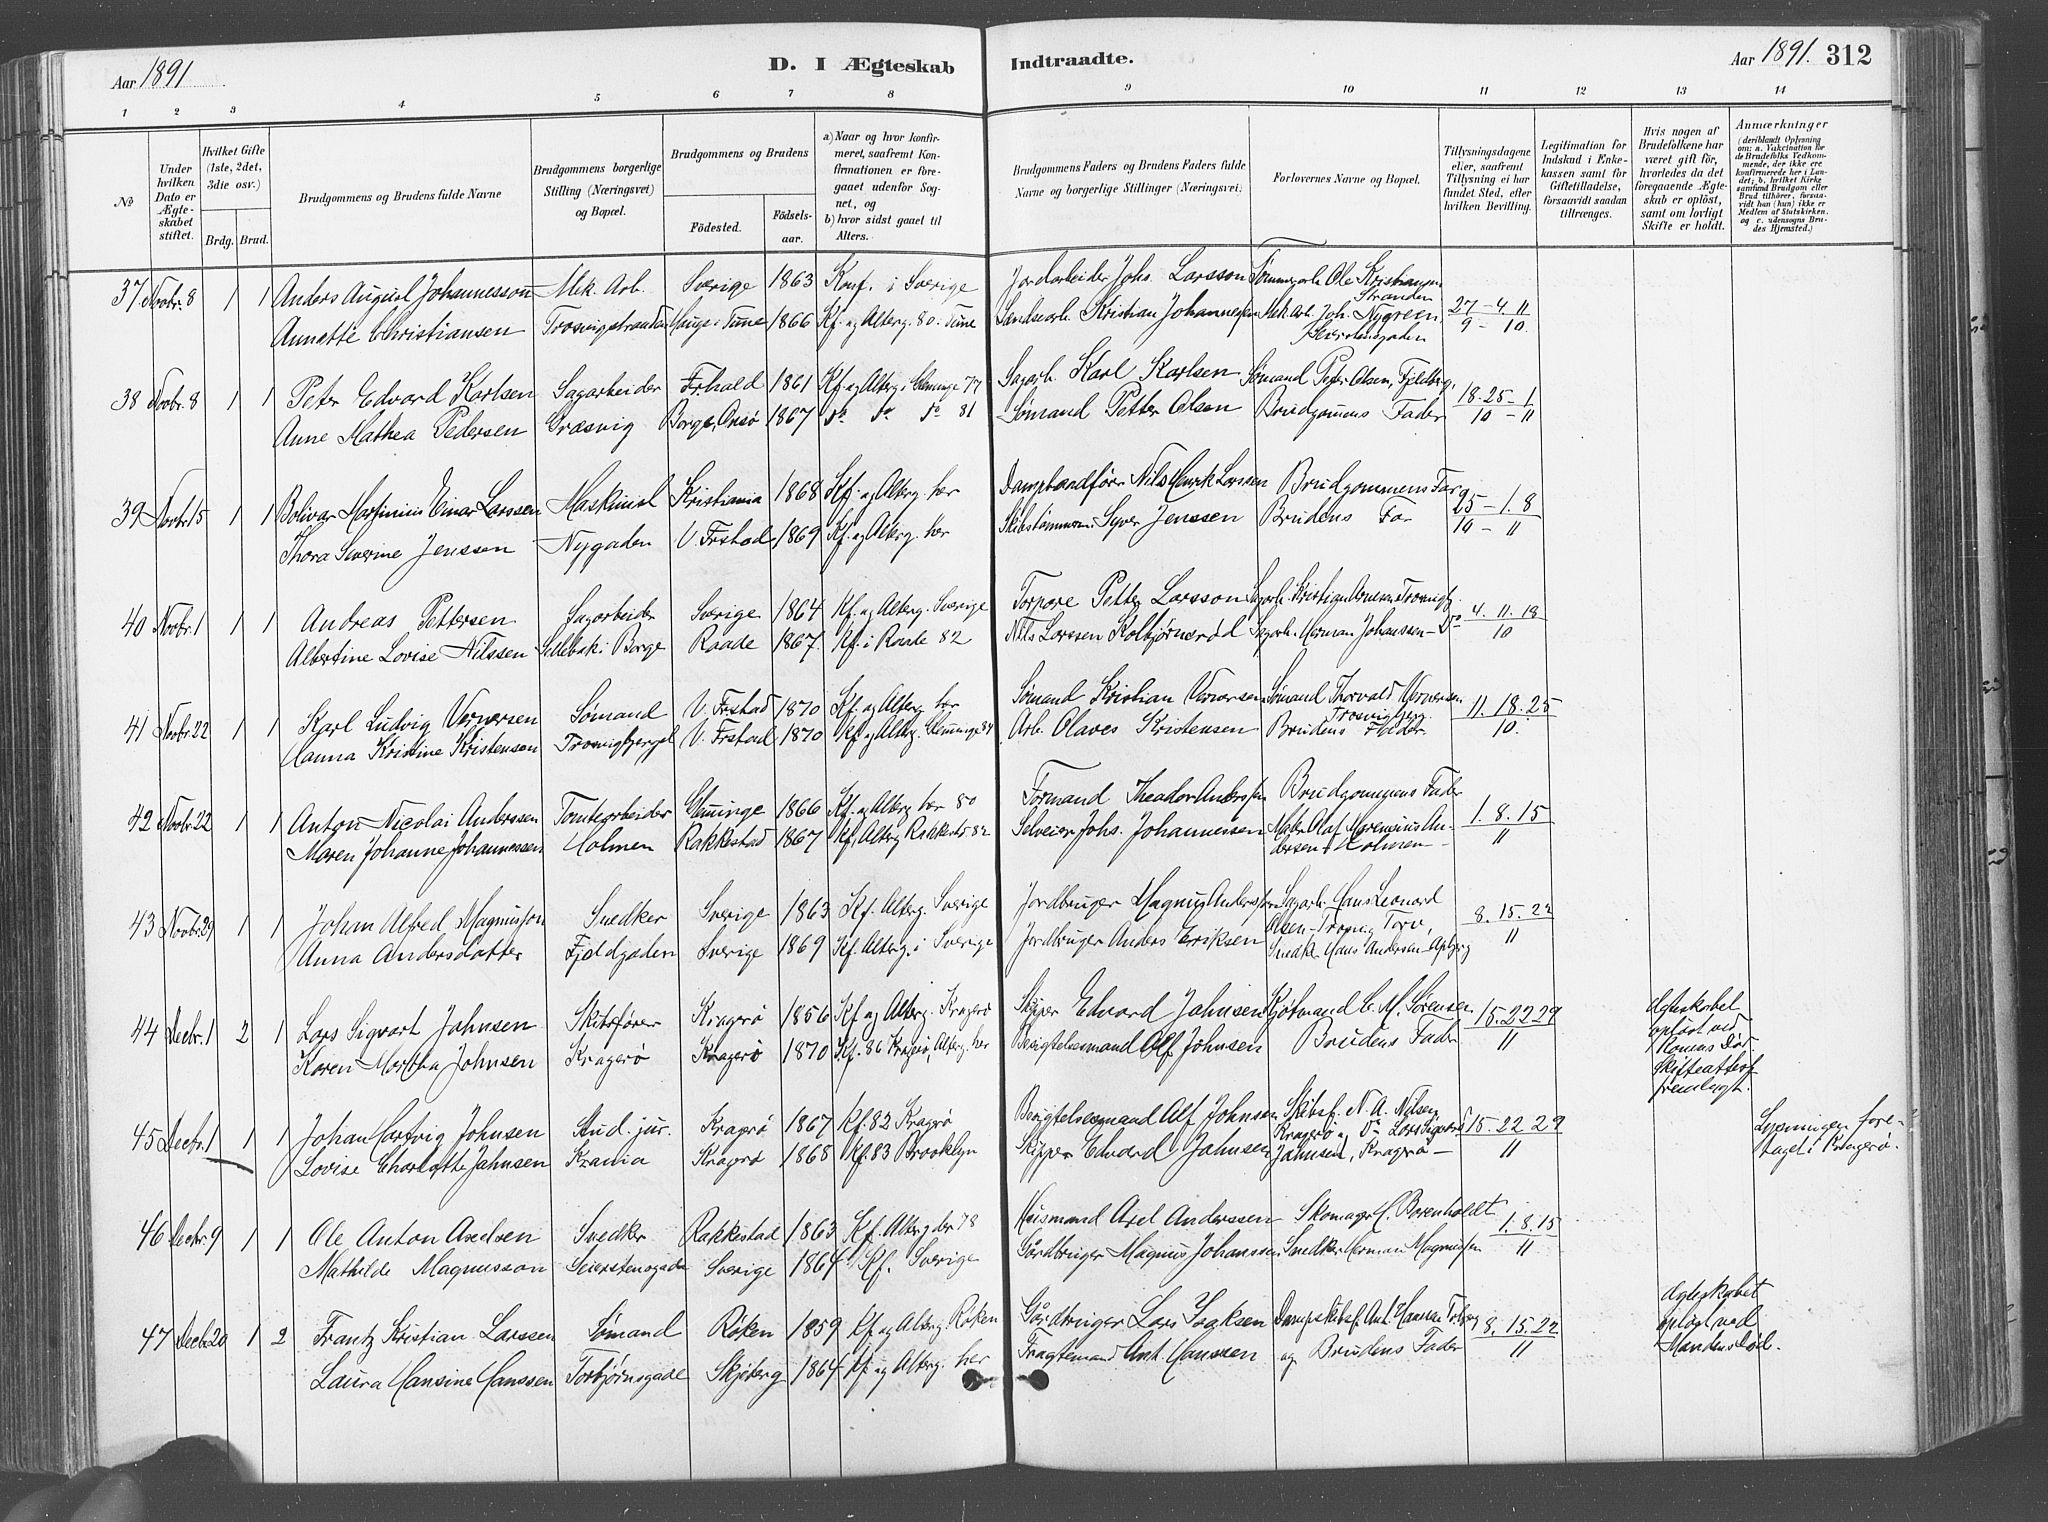 Aar 1891
D. I Ægteskab
Indtraadte.
Aar 1891. 312
1 2 3 4 5 6 7 8 9 10 11 12 13 14
No
Under hvilken Dato er Ægteskabet stiftet.
Hvilket Gifte (1ste, 2det, 3die osv.)
Brdg. Brud.
Brudgommens og Brudens fulde Navne
Brudgommens borgerlige Stilling (Næringsvei) og Bopæl.
Brudgommens og Brudens
Födested.
Födselsaar.
a) Naar og hvor konfirmeret, saafremt Konfirmationen er foregaaet udenfor Sognet, og
b) hvor sidst gaaet til Alters.
Brudgommens Faders og Brudens Faders fulde Navne og borgerlige Stillinger (Næringsvei)
Forlovernes Navne og Bopæl.
Tillysningsdagene eller, saafremt Tillysning ei har fundet Sted, efter hvilken Bevilling.
Legitimation for Indskud i Enkekassen samt for Giftetilladelse, forsaavidt saadan tiltrænges.
Hvis nogen af Brudefolkene har været gift för, hvorledes da det foregaaende Ægteskab er oplöst, samt om lovligt Skifte er holdt.
Anmærkninger
(deriblandt Oplysning om: a. Vakcination for de Brudefolks Vedkommende, der ikke ere konfirmerede her i Landet; b. hvilket Kirkesamfund Brudgom eller Brud tilhörer, forsaavidt han (hun) ikke er Medlem af Statskirken, og c. udensogns Brudes Hjemsted.)
37 Novbr. 8 1 1 Anders August Johannesson Mek. Arb. Sverige 1863 Konf. i Sverige Jordarbeider Johs. Larsson Ole Kristiansen
Stranden
Annette Christiansen Trosvigstranden Tune 1866 Kf. og Alterg. 80. Tune Kristian Johannessen Mek. Arb. Joh. Nygreen 27 - 4. 11
9 - 10.
38 Novbr. 8 1 1 Peter Edvard Karlsen Sagarbeider Frhald 1861 Kf. og Alterg. i Glemminge 77 Sagarb. Karl Karlsen Sømand Peter Olsen, Fjeldberg. 18. 25 - 1
Anne Mathea Pedersen Græsvig Borge, Onsø 1867 do do do 81 Sømand Petter Olsen Brudgomens Fader 10 - 11
39 Novbr. 15 1 1 Bolivar Martinius Einar Larssen Maskinist Kristiania 1868 Kf. og Alterg. her Dampbaadfører Nils Henrik Larssen Brudgommens Far og 25 - 1. 8
Thora Severine Jenssen Nygaden V. Frstad 1869 Kf. og Alterg. her Skibstømmerm. Syver Jenssen Brudens Far 10 - 11
40 Novbr. 1 1 1 Andreas Pettersen Sagarbeider Sverige 1864 Kf. og Alterg. Sverige Torpare Petter Larsson Sagarb. Kristian Arnesen Trosvigbg. 4. 11. 18
Albertine Lovise Nilssen Sellebak i Borge Raade 1867. Kf. i Raade 82 Nils Larssen Kolbjørnsrød Sagarb. Herman Johanssen - do 10
41 Novbr. 22 1 1 Karl Ludvig Vernersen Sømand V. Frstad 1870 Kf. og Alterg. her Sømand Kristian Vernersen Sømand Thorvald Vernersen 11. 18. 25
Trosvigberg.
Hanna Kristine Kristensen Trosvigberget V. Frstad 1870 Kf. og Alterg. Glemminge 84 Arb. Olaves Kristensen Brudens Fader. 10.
42 Novbr. 22 1 1 Anton Nicolai Anderssen Tomtearbeider Glemminge 1866 Kf. og Alterg. her 80 Formand Theodor Anderssen Brudgommens Fader 1. 8. 15
Maren Johanne Johannessen Holmen Rakkestad 1867 Kf. Alterg. Rakkestd. 82 Selveier Johs. Johannessen Maler Olaf Marensius An- 11
dersen i Holmen -
43 Novbr. 29 1 1 Johan Alfred Magnusson Snedker Sverige 1863 Kf. Alterg. Sverige Jordbruger Magnus Anderssen Sagarb. Hans Leonard 8. 15. 22
Olsen - Trosvig Torv,
Anna Andersdatter Fjeldgaden Sverige 1869 Kf. Alterg. i Sverige Jordbruger Anders Eriksen Snedker Hans Andersen - Apberg 11
44 Decbr. 1 2 1 Lars Sigvart Jahnsen Skibsfører Kragerø 1856 Kf. og Alterg. Kragerø Skipper Edvard Jahnsen Kjøbmand C. M. Sørensen 15. 22 29 Ægteskabet
opløst ved
Karen Martha Johnsen Kragerø Kragerø 1870 Kf. 86 Kragerø, Alterg. her Besigtelsesmand Alf Johnsen Brudens Fader 11 Konens Død
Skifteattest
fremlagt.
45 Decbr. 1 1 1 Johan Hartvig Johnsen Stud. jur. Kragrø 1867 Kf. 82 Kragrø Besigtelsesmand Alf Johnsen Skibsf. N. A. Nilsen 15. 22 29 Lysningen fore-
taget i Kragerø.
Lovise Charlotte Jahnsen Krania Kragrø 1868 Kf. 83 Brooklyn Skipper Edvard Jahnsen Kragerø og do Lars Sigvard 11
Jahnsen, Kragrø -
46 Decbr. 9 1 1 Ole Anton Axelsen Snedker Rakkestad 1863 Kf. Alterg. der 78 Husmand Axel Anderssen Skomager C. Borenholdt 1. 8. 15
Mathilde Magnusson Seierstensgade Sverige 1864 Kf. Sverige Gårdbruger Magnus Johanssen Snedker Herman Magnussen 11
47 Decbr. 20 1 2 Frantz Kristian Larssen Sømand Røken 1859 Kf. og Alterg. Røken Gårdbruger Lars Isaksen Dampskibsf. Ant. Hanssen 8. 15. 22 Ægteskabet
opløst ved
Laura Hansine Hanssen Torbjørnsgade Skjeberg 1864 Kf. og Alterg. her Fragtemand Ant. Hanssen og Brudens Fader 11 Mandens Død.